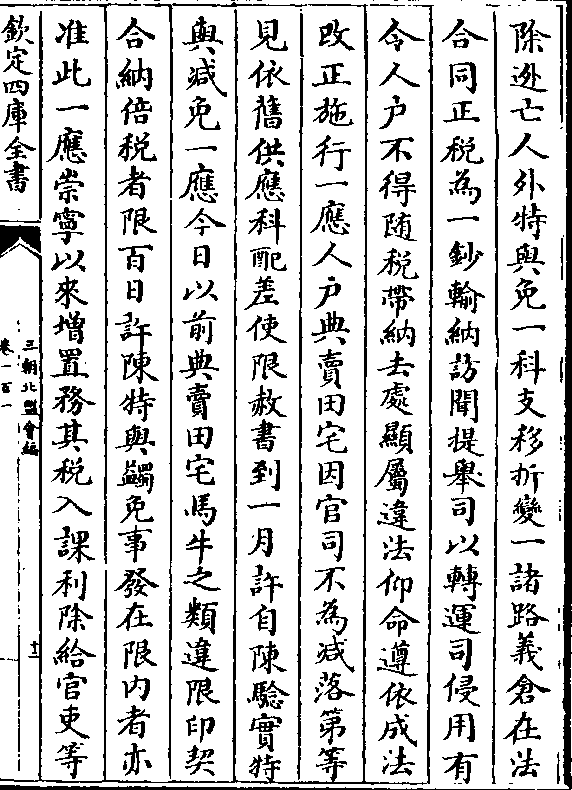 除逃亡人外特與免一科支移折變一諸路義倉在法
合同正税為一鈔輸納訪聞提舉司以轉運司侵用有
令人户不得随税帶納去處顯屬違法仰命遵依成法
改正施行一應人户典賣田宅因官司不為减落第等
見依舊供應科配差使限赦書到一月許自陳驗實特
與减免一應今日以前典賣田宅馬牛之類違限印契
合納倍税者限百日許陳特與蠲免事發在限内者亦
准此一應崇寧以來増置務其税入課利除給官吏等
欽定四庫全書
三朝北盟會編
卷一百一
十二